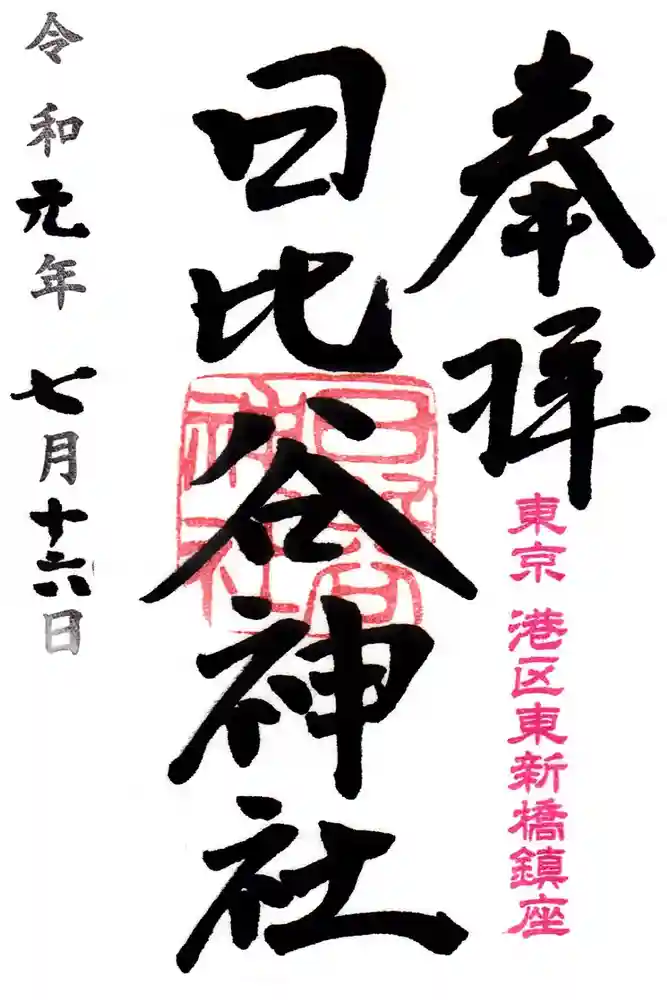 奉拝
東京 港区東新橋鎮座
日比谷神社
日比谷神社
令和元年 七月十六日